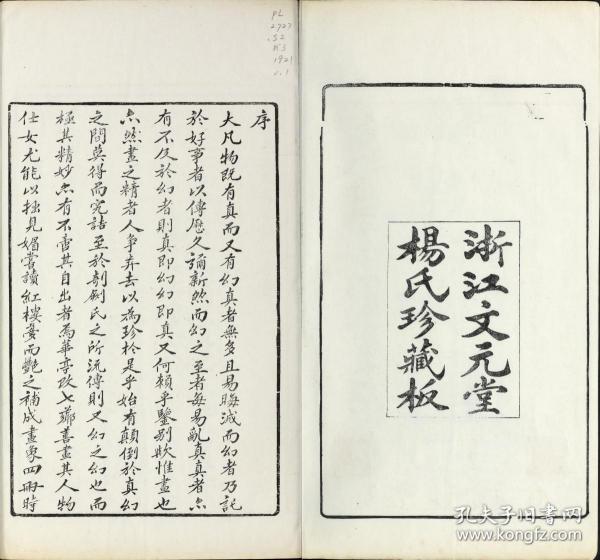 浙江文元堂
楊氏珍藏板
序
大凡物既有真而又有幻真者無多且易晦滅而幻者乃託
於好事者以傳歷久彌新然而幻之至者每易亂真真者亦
有不及於幻者則真即幻幻即真又何賴乎鑒别欤惟畫也
亦然畫之精者人争弆去以為珍於是乎始有顛倒於真幻
之間莫得而究詰至於剞劂氏之所流傳則又幻之幻也而
極其精妙亦有不啻其自出者為華亭改七薌善畫其人物
仕女尤能以拙見媚嘗讀紅樓夢而艷之補成畫象四冊時
PL
2727
.S2
1921
v.1
孔夫子旧书网
kongfz.com